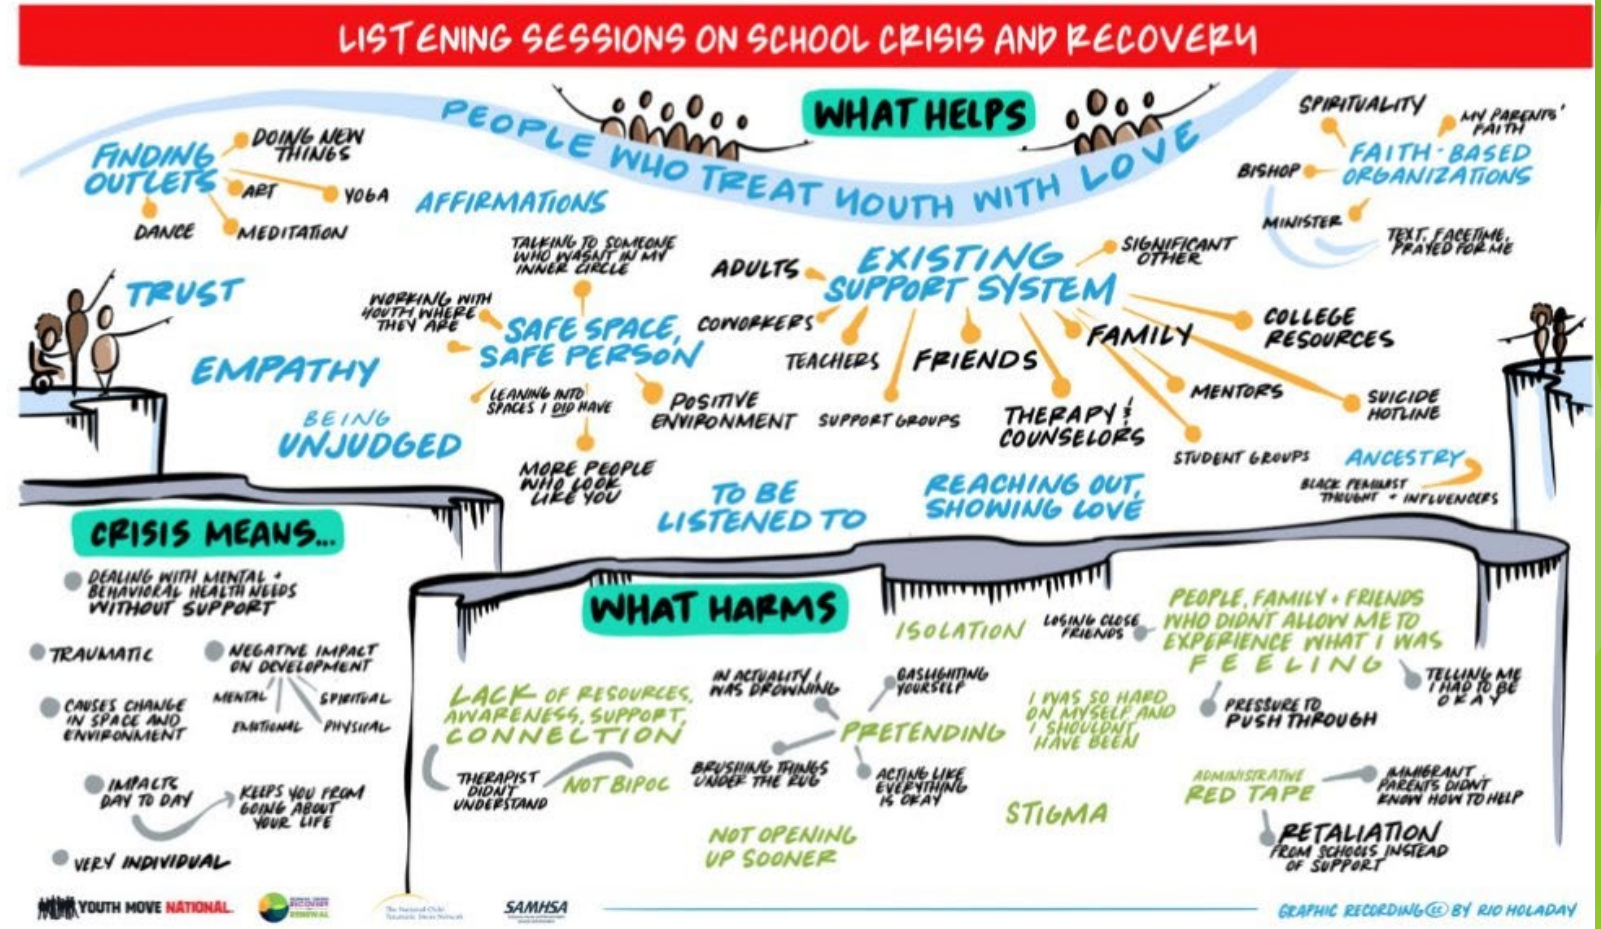 LISTENING SESSIONS ON SCHOOL CRISIS AND RECOVERY
WHAT HELPS
PEOPLE WHO TREAT YOUTH WITH LOVE
FINDING
OUTLETS
DOING NEW
THINGS
ART
YOGA
DANCE
MEDITATION
AFFIRMATIONS
TRUST
EMPATHY
BEING
UNJUDGED
TALKING TO SOMEONE
WHO WASN'T IN MY
INNER CIRCLE
WORKING WITH
YOUTH WHERE
THEY ARE
SAFE SPACE,
SAFE PERSON
LEANING INTO
SPACES I DID HAVE
POSITIVE
ENVIRONMENT
MORE PEOPLE
WHO LOOK
LIKE YOU
EXISTING
SUPPORT SYSTEM
ADULTS
COWORKERS
TEACHERS
SUPPORT GROUPS
FRIENDS
THERAPY &
COUNSELORS
FAMILY
MENTORS
STUDENT GROUPS
SIGNIFICANT
OTHER
COLLEGE
RESOURCES
SUICIDE
HOTLINE
SPIRITUALITY
MY PARENTS'
FAITH
FAITH-BASED
ORGANIZATIONS
BISHOP
MINISTER
TEXT, FACETIME,
PRAYED FOR ME
ANCESTRY
BLACK FEMINIST
THOUGHT + INFLUENCERS
TO BE
LISTENED TO
REACHING OUT,
SHOWING LOVE
CRISIS MEANS...
DEALING WITH MENTAL +
BEHAVIORAL HEALTH NEEDS
WITHOUT SUPPORT
TRAUMATIC
NEGATIVE IMPACT
ON DEVELOPMENT
MENTAL
EMOTIONAL
SPIRITUAL
PHYSICAL
CAUSES CHANGE
IN SPACE AND
ENVIRONMENT
IMPACTS
DAY TO DAY
KEEPS YOU FROM
GOING ABOUT
YOUR LIFE
VERY INDIVIDUAL
WHAT HARMS
LACK OF RESOURCES,
AWARENESS, SUPPORT,
CONNECTION
THERAPIST
DIDN'T
UNDERSTAND
NOT BIPOC
IN ACTUALITY I
WAS DROWNING
GASLIGHTING
YOURSELF
PRETENDING
BRUSHING THINGS
UNDER THE RUG
ACTING LIKE
EVERYTHING
IS OKAY
NOT OPENING
UP SOONER
ISOLATION
LOSING CLOSE
FRIENDS
I WAS SO HARD
ON MYSELF AND
I SHOULDN'T
HAVE BEEN
STIGMA
PEOPLE, FAMILY + FRIENDS
WHO DIDN'T ALLOW ME TO
EXPERIENCE WHAT I WAS
FEELING
PRESSURE TO
PUSH THROUGH
TELLING ME
I HAD TO BE
OKAY
ADMINISTRATIVE
RED TAPE
IMMIGRANT
PARENTS DIDN'T
KNOW HOW TO HELP
RETALIATION
FROM SCHOOLS INSTEAD
OF SUPPORT
YOUTH MOVE NATIONAL.
RECOVERY
RENEWAL
The National Child
Traumatic Stress Network
SAMHSA
GRAPHIC RECORDING CC BY RIO HOLADAY